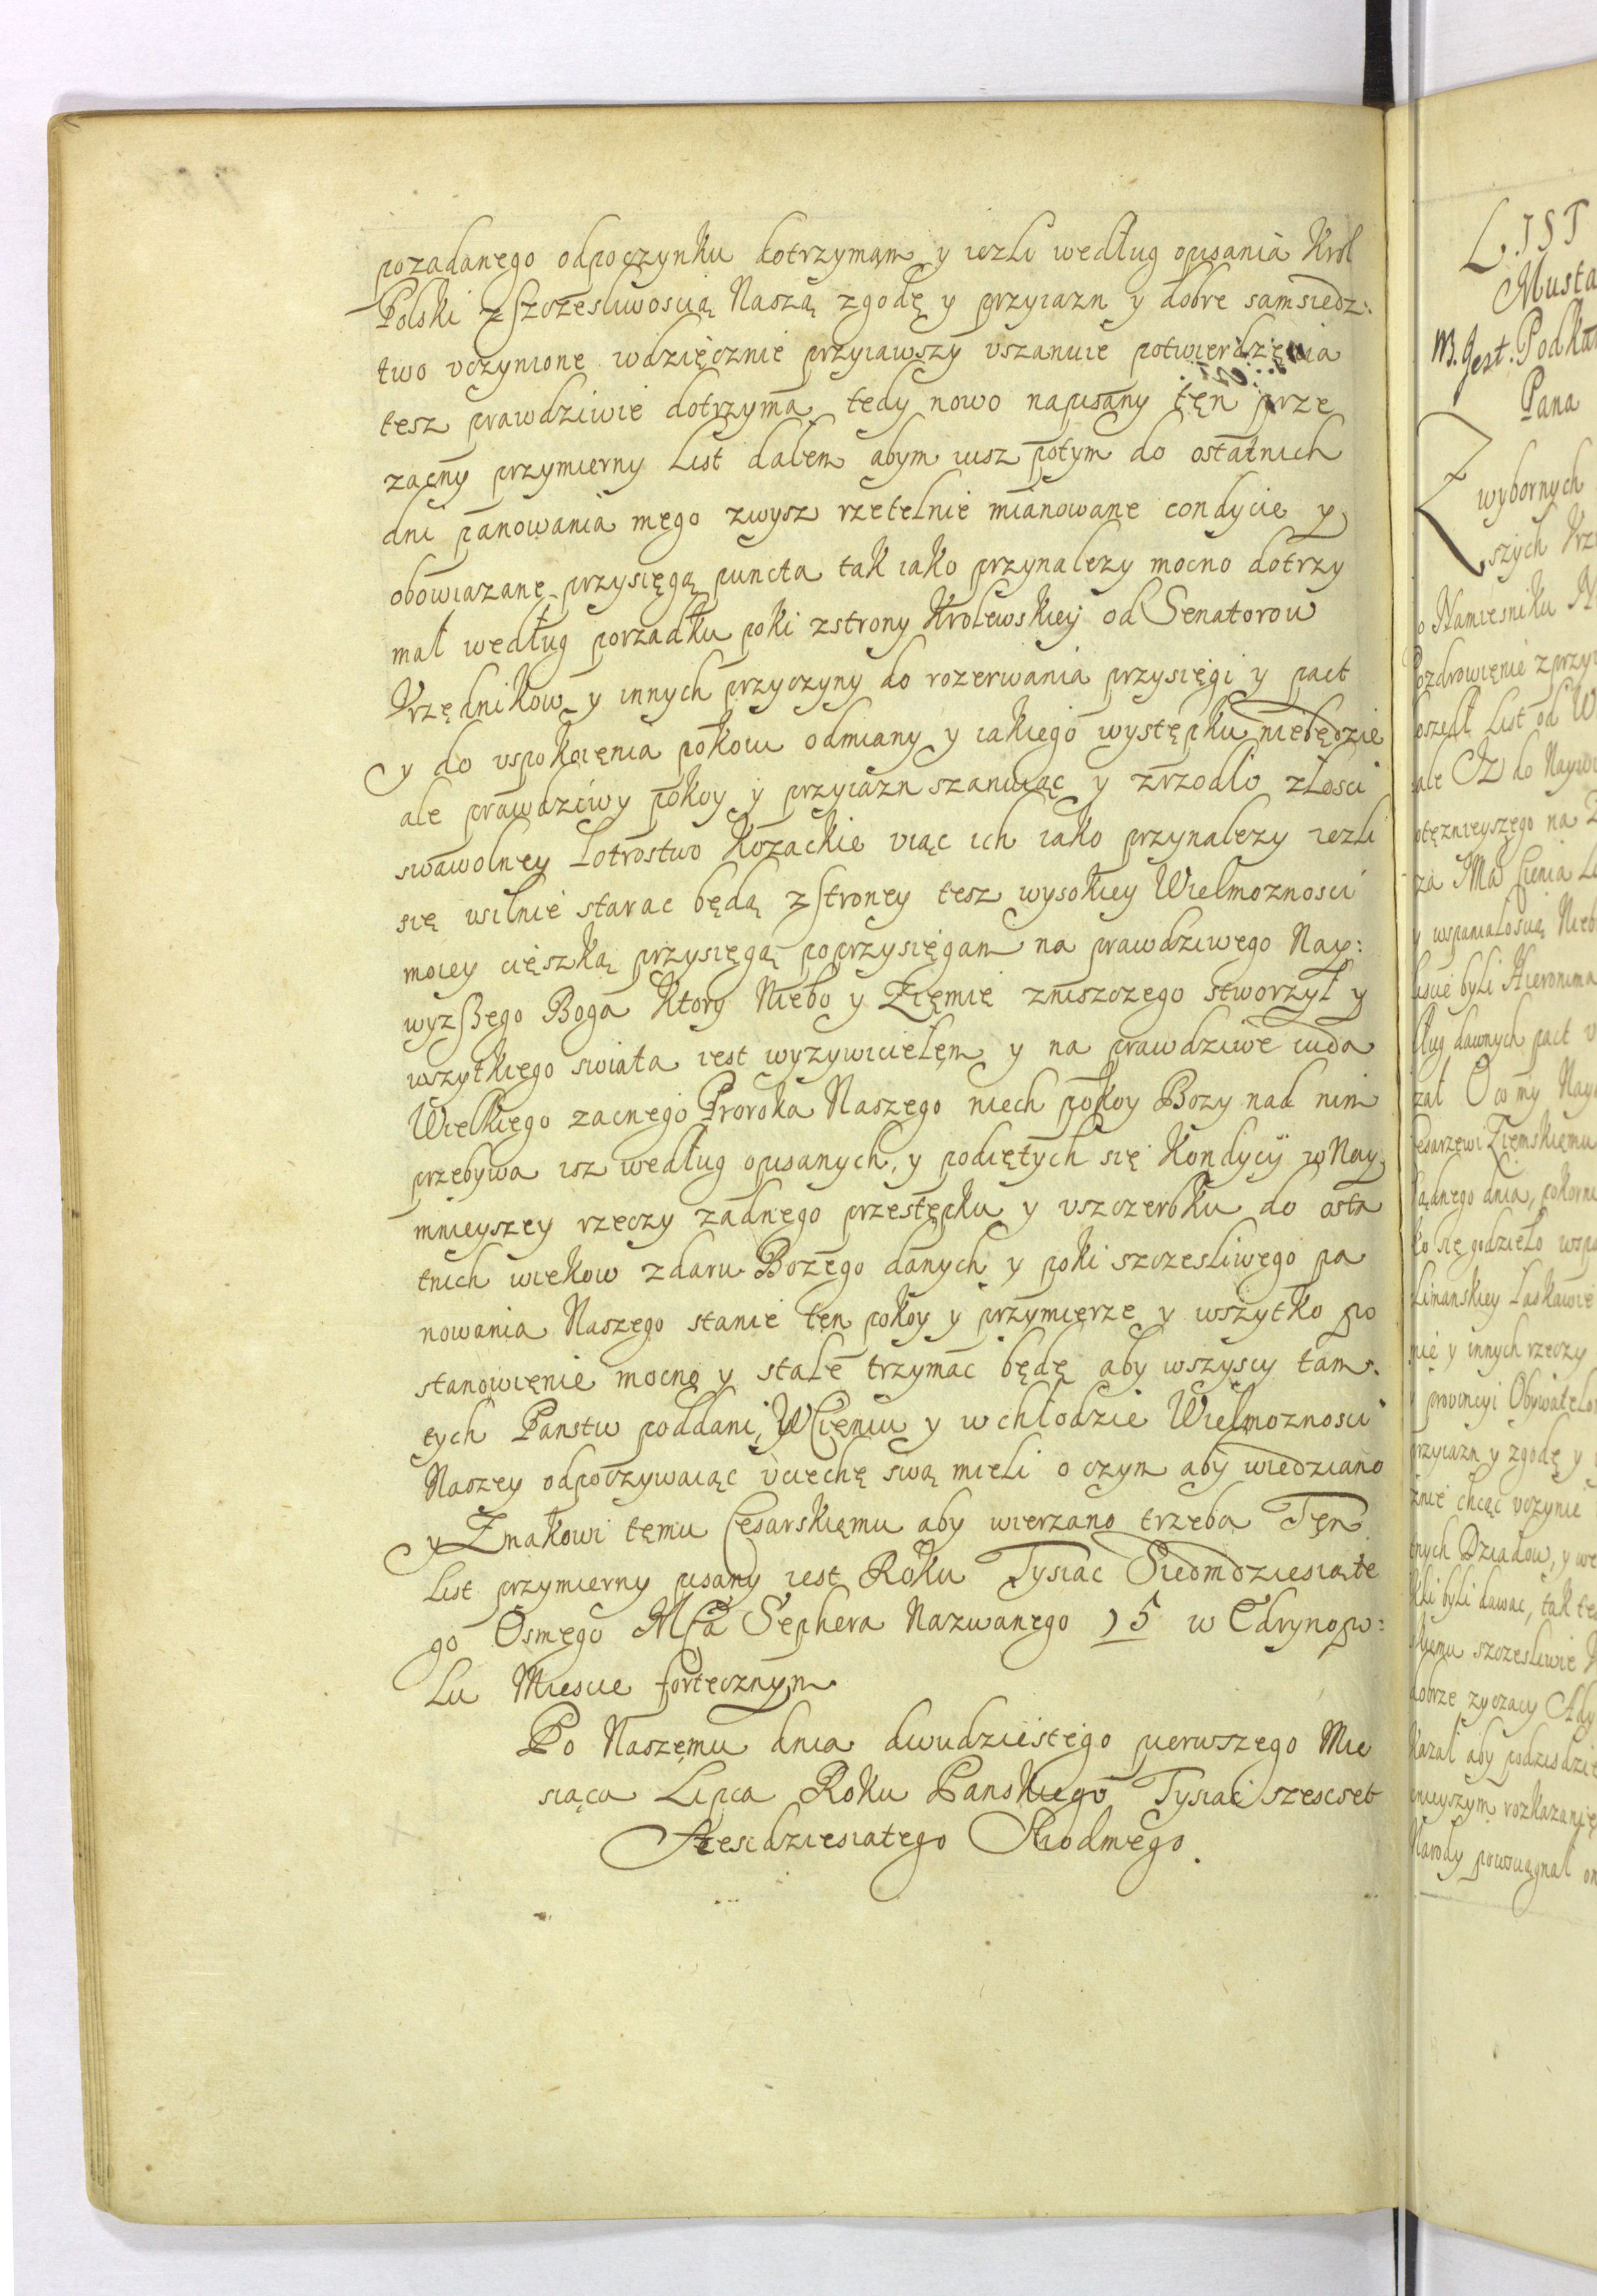 pozadanego odpoczynku dotrzymam y iezli według opisania Krol
Polski z szczesliwoscią Naszą zgodę y przyiazn y dobre samsiedz:
two vczynione wdzięcznie przyiawszy vszanuie potwierdzęnia
tesz prawdziwie dotrzyma tedy nowo napisany tęn prze
zacny przymierny List dałem abym iusz potym do ostatnich
dni panowania mego zwysz rzetelnie mianowane condycie y
obowiazane przysięgą puncta tak iako przynalezy mocno dotrzy
mał według porzadku poki zstrony Krolewskiey od Senatorow
Vrzędnikow y innych przyczyny do rozerwania przysięgi y pact
y do vspokoięnia pokoiu odmiany y iakiego występku niebędzie
ale prawdziwy pokoy y przyiazn szanuiąc y zrzodło złosci
swawolney Lotrostwo Kozackie viąc ich iako przynalezy iezli
się vsilnie starac będą z stroney tesz wysokiey Wielmoznosci
moiey cięszką przysięgą poprzysięgam na prawdziwego Nay:
wyzszego Boga Ktory Niebo y Zięmię zniszczego stworzył y
wszytkiego swiata iest wyzywicielęm y na prawdziwe cuda
Wielkiego zacnego Proroka Naszego niech pokoy Bozy nad nim
przebywa isz według opisanych, y podiętych się Kondycÿ w Nay
mnieyszey rzeczy zadnego przestępku y vszczerbku do osta
tnich wiekow zdaru Bozego danych y poki szczesliwego pa
nowania Naszego stanie tęn pokoy y przymierze y wszytko po
stanowięnie mocno y stale trzymac będę aby wszyscy tam
tych Panstw poddani, W Cięniu y w chłodzie Wielmoznosci
Naszey odpoczywaiąc vciechę swą mieli o czym aby wiedziano
y Znakowi tęmu Cesarskięmu aby wierzano trzeba Tęn
List przymierny pisany iest Roku Tysiac Siedmdziesiate
go Osmego Msca Sephera Nazwanego 15 w Edrynopo:
Lu Miescie fortecznym
Po Naszęmu dnia dwudziestego pierwszego Mie
siąca Lipca Roku Panskiego Tysiac szescset
Szesdziesiatego Siodmego.
LIST
Musta
Pana
Z wybornych
szych
o Namiesniku
ozdrowięnie z przyi
oszedł List od W
y wspaniałoscią Nieb
iscie byli Hieronima
dług dawnych pact
esarzewi Zięmskięmu
adnego dnia, pokorni
ko się godzieło wspo
Limanskiey Laskawie
nie y innych rzeczy
y provincyi Obywatelo
rzyiazn y zgodę y
znie chcąc vczynic
tnych Dziadow, y we
kli byli dawac, tak te
skiemu szczesliwie
dobrze zyczacy
kazał aby podzisdzie
mnieyszym rozkazanię
Narody